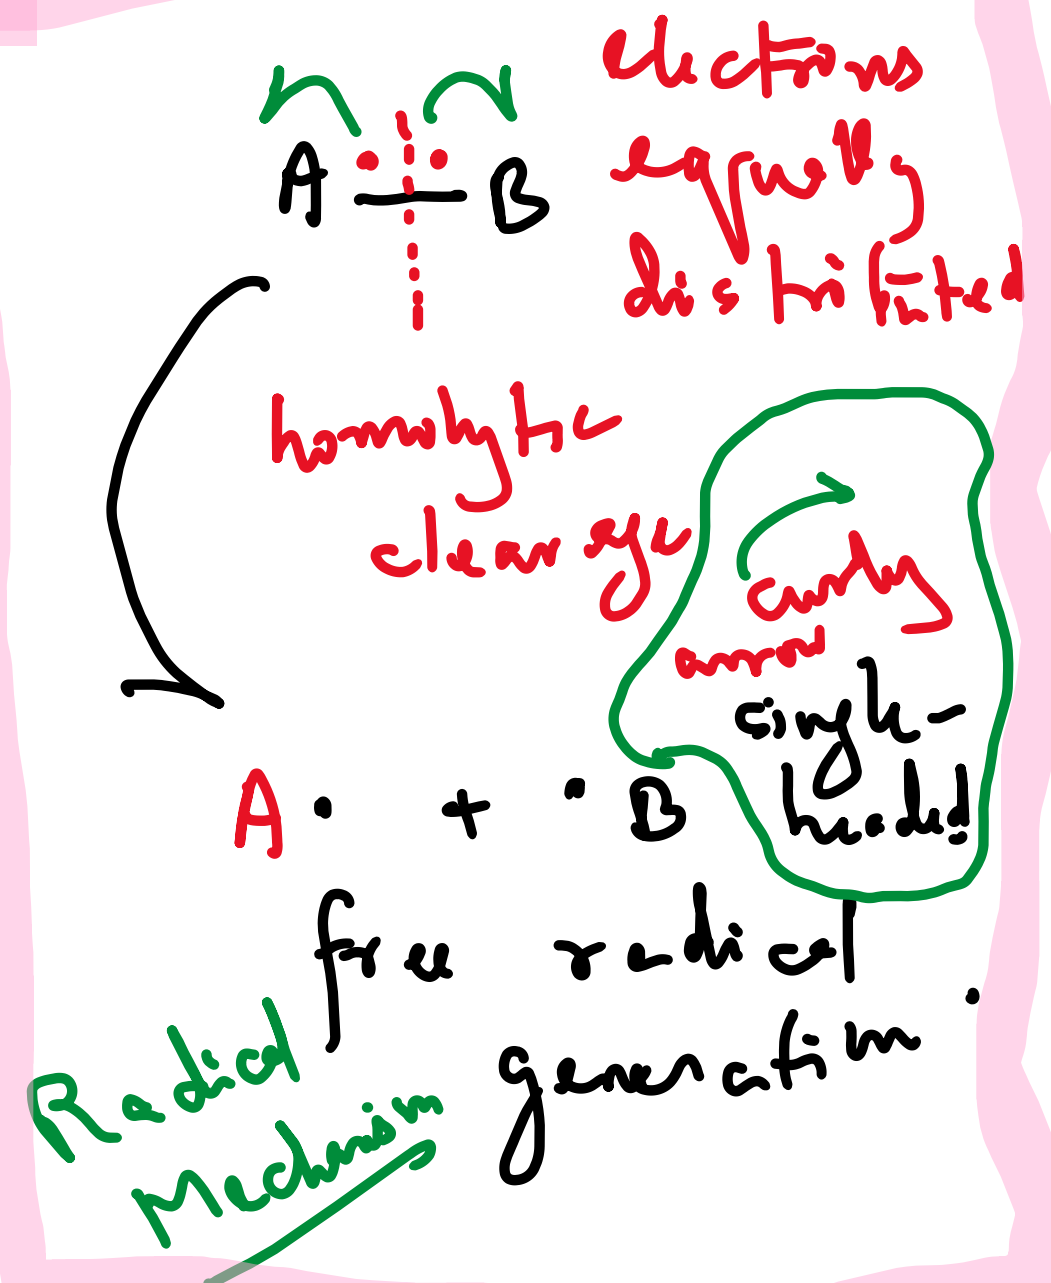 electrons
equally
distributed
A — B
homolytic
cleavage
curly
arrow
single-
headed
A • + • B
free radical
generation.
Radical
Mechanism